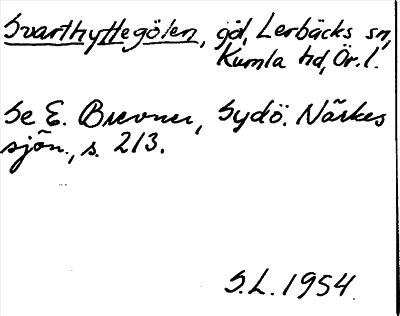 Svarthyttegölen, göl, Lerbäcks sn,
Kumla hd, Ör. l.
Se E. Brevner, Sydö. Närkes
sjön., s. 213.
S.L. 1954